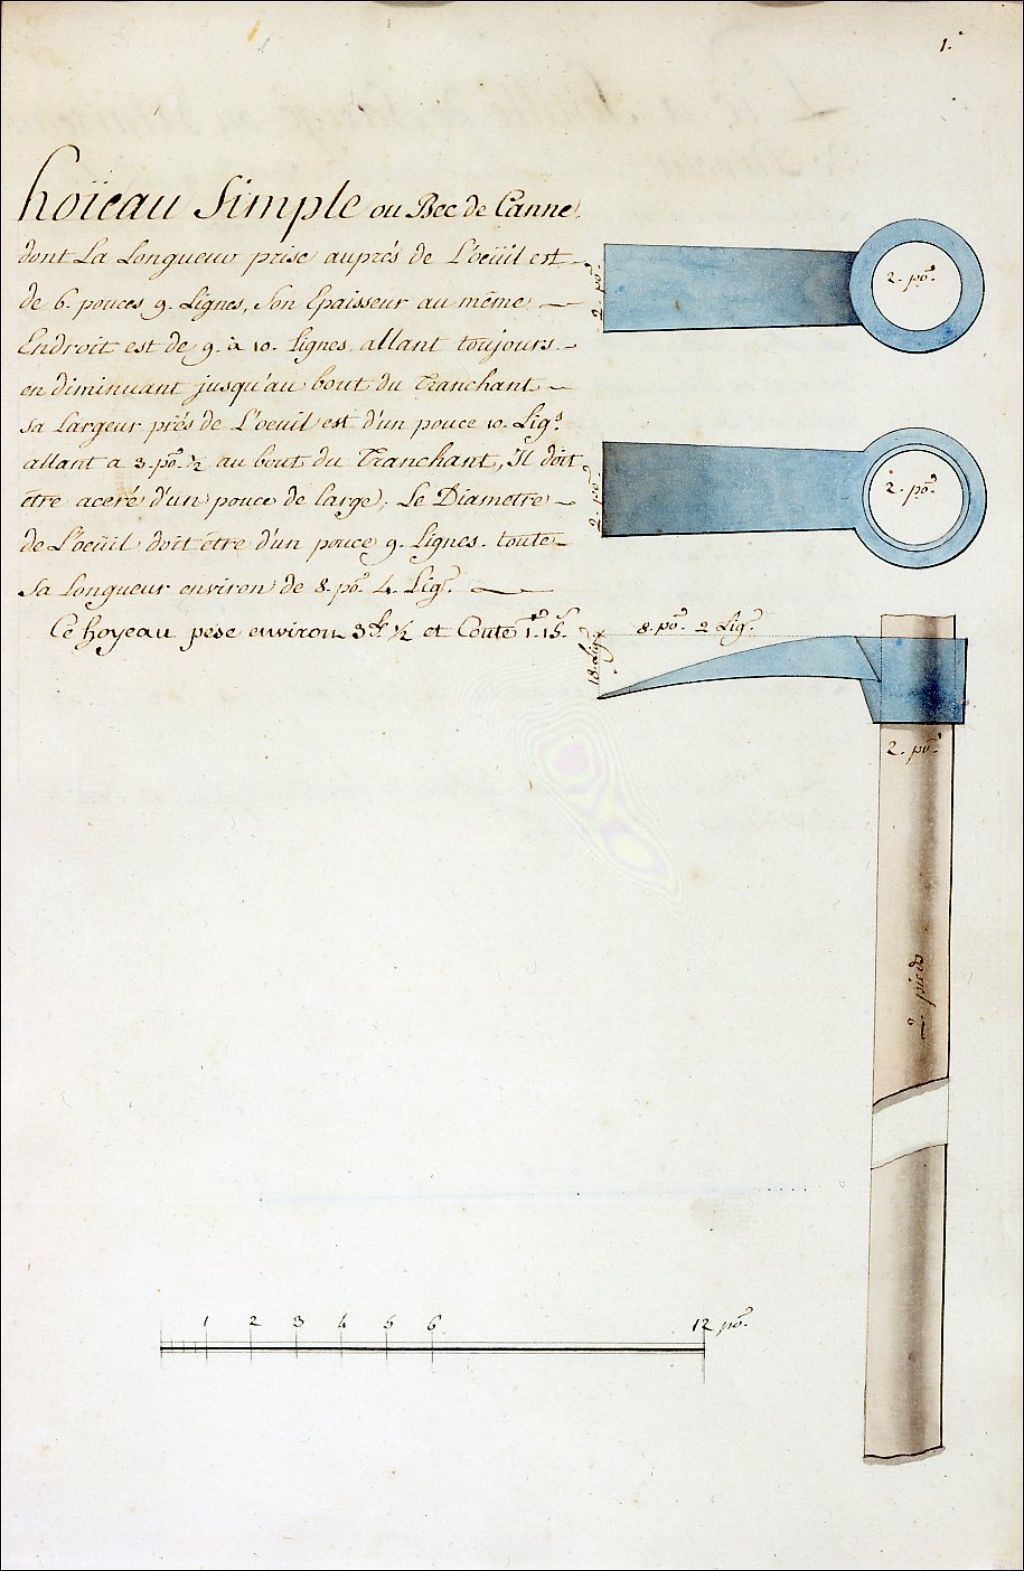 1.
hoïeau Simple ou Bec de Canne
dont La Longueur prise auprés de L'oeüil est
de 6. pouces 9. Lignes, Son Epaisseur au même
Endroit est de 9. à 10. Lignes, allant toujours
en diminuant jusqu'au bout du Tranchant
sa Largeur prés de L'oeuil est d'un pouce 10. Lig.s
allant a 3. po.s ½ au bout du Tranchant, Il doit
étre aceré d'un pouce de large, Le Diametre
de L'oeüil doit étre d'un pouce 9. Lignes. toute
Sa Longueur environ de 8. po.s 4. Lig.s
Ce hoyeau pese environ 3 ½ et Coute 1. 15.
2. po.s
2. po.s
2. po.s
2. po.s
8. po.s 2 Lig.s
18. Lig.s
2. po.s
2 pieds
1 2 3 4 5 6 12 po.s